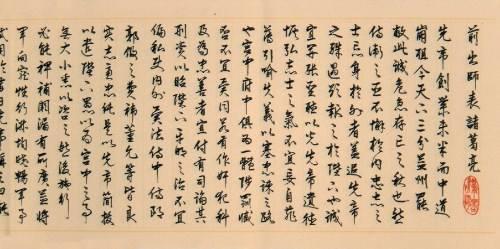 前出師表 諸葛亮
先帝創業未半而中道
崩殂今天下三分益州罷
敝此誠危急存亡之秋也然
侍衛之臣不懈於內忠志之
士忘身於外者蓋追先帝
之殊遇欲報之於陛下也誠
宜開張聖聽以光先帝遺德
恢弘志士之氣不宜妄自菲
薄引喻失義以塞忠諫之路
也宮中府中俱為一體陟罰臧
否不宜異同若有作奸犯科
及為忠善者宜付有司論其
刑賞以昭陛下平明之治不宜
偏私使內外異法侍中侍郎
郭攸之費禕董允等皆良
實志慮忠純是以先帝簡拔
以遺陛下愚以為宮中之事
無大小悉以咨之然後施行
必能裨補闕漏有所廣益將
軍向寵性行淑均曉暢軍事
試用於昔日先帝稱之曰能